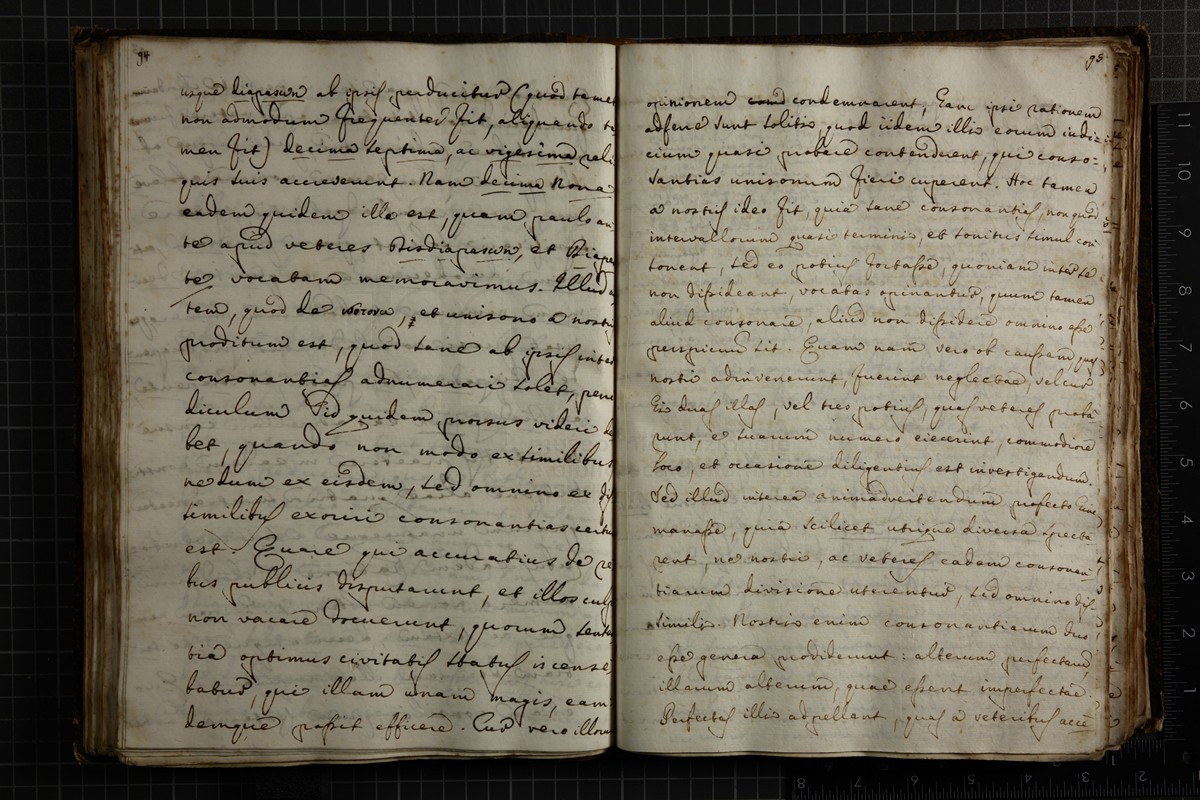 94
usque diapason ab ipsis perducitur (quod tamen
non admodum frequenter fit, aliquando ta
men fit) decima septima, ac vigesima reli
quis suis accreverunt. Nam decima nona
eadem quidem illa est, quam paulo an
te apud veteres Bisdiapason, et Diape
te vocatam memoravimus. Illud a
tem, quod de et unisono a nostris
proditum est, quod sane ab ipsis inter
consonantias adnumerari solet, peri
diculum id quidem prorsus videri de
bet, quando non modo ex similibus
nedum ex eisdem, sed omnino ex dis
similibus exoriri consonantias certum
est. Quare qui accuratius de re
bus publicis disputarunt, et illos culpa
non vacare docuerunt, quorum senten
tia optimus civitatis status is cense
batur, qui illam unam magis, eam
demque possit efficere. Cur vero illorum
95
opinionem condemnarent, hanc ipsi rationem
adferre sunt soliti, quod iidem illi eorum iudi=
cium quasi probare contenderent, qui conso=
nantias unisonum fieri cuperent. Hoc tamen
a nostris ideo fit, quia sane consonantias, non quod
intervallorum quasi terminis, et sonitus simul con
sonent, sed eo potius fortasse, quoniam inter se
non dissideant, vocatas opinantur, quum tamen
aliud consonare, aliud non dissidere omnino esse
perspicuum sit. Quam nam vero ob causam quas
nostri adinvenerunt, fuerint neglectae, vel cur
Ei duas illas, vel tres potius, quas veteres proba
runt, e suarum numero eiecerint, commodiore
loco, et occasione diligentius est investigandum.
Sed illud interea animadvertendum profecto hinc
manasse, quia scilicet utrique diversa specta
rent, ne nostri, ac veteres eadem consonan
tiarum divisione uterentur, sed omnino dis
simili. Nostri enim consonantiarum duo
esse genera prodiderunt: alterum perfectarum,
illarum alterum, quae essent imperfectae.
Perfectas illi adpellant, quas a veteribus acce